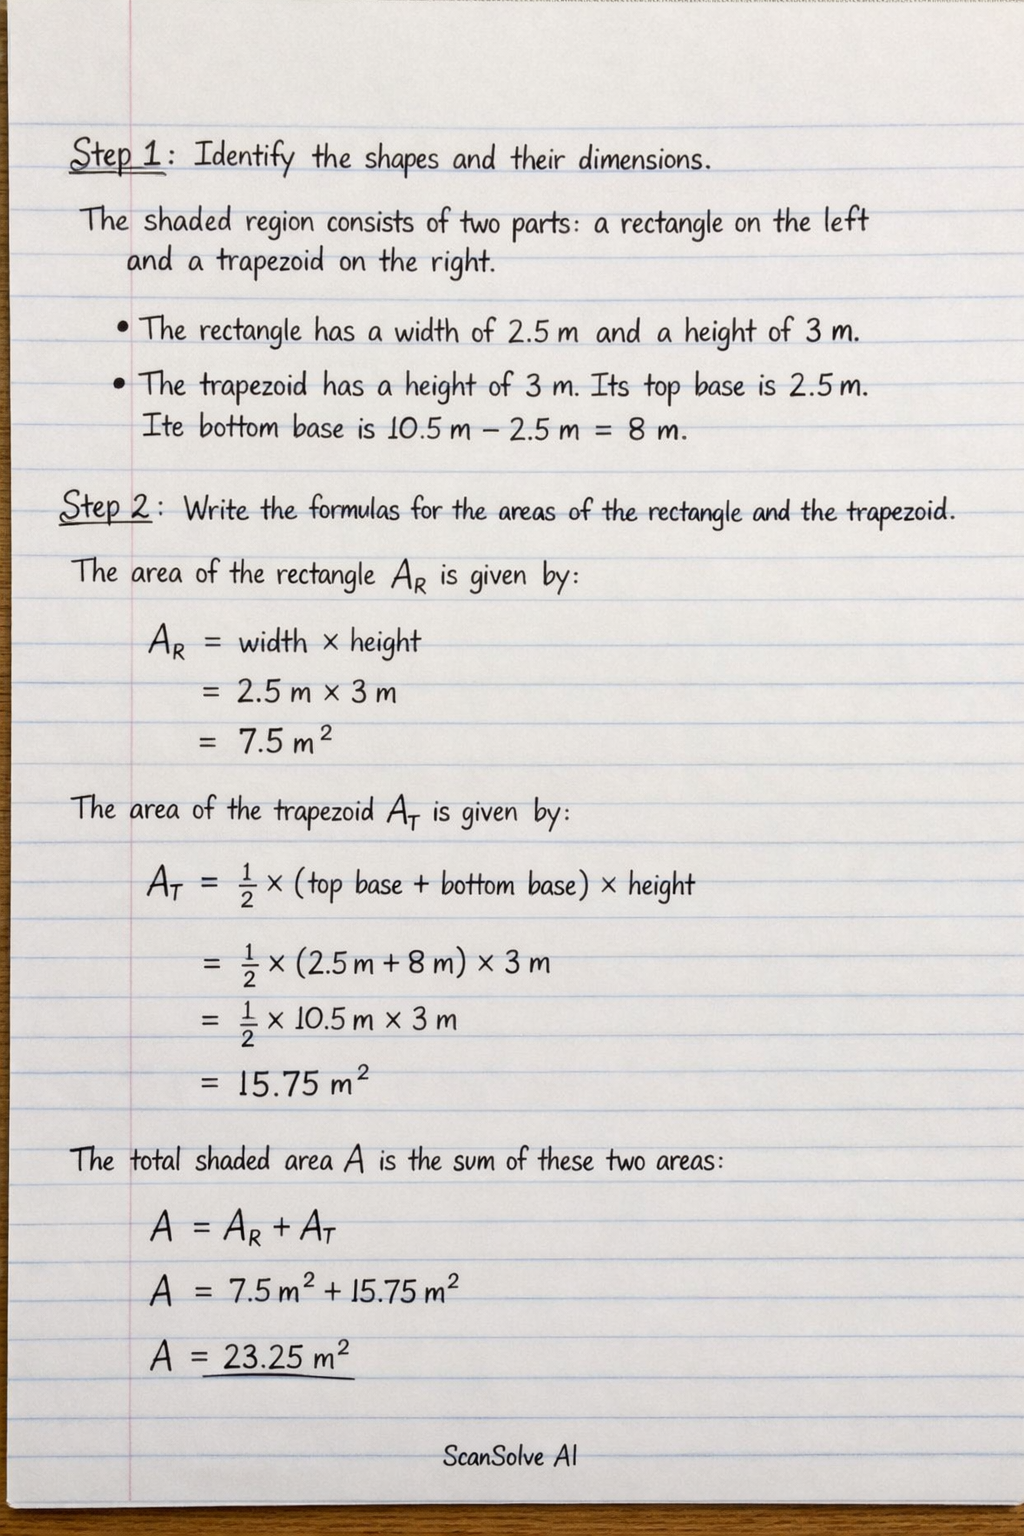 Step 1: Identify the shapes and their dimensions.
The shaded region consists of two parts: a rectangle on the left
and a trapezoid on the right.
• The rectangle has a width of 2.5 m and a height of 3 m.
• The trapezoid has a height of 3 m. Its top base is 2.5 m.
Ite bottom base is 10.5 m − 2.5 m = 8 m.
Step 2: Write the formulas for the areas of the rectangle and the trapezoid.
The area of the rectangle A_R is given by:
A_R = width × height
= 2.5 m × 3 m
= 7.5 m²
The area of the trapezoid A_T is given by:
A_T = 1/2 × (top base + bottom base) × height
= 1/2 × (2.5 m + 8 m) × 3 m
= 1/2 × 10.5 m × 3 m
= 15.75 m²
The total shaded area A is the sum of these two areas:
A = A_R + A_T
A = 7.5 m² + 15.75 m²
A = 23.25 m²
ScanSolve AI